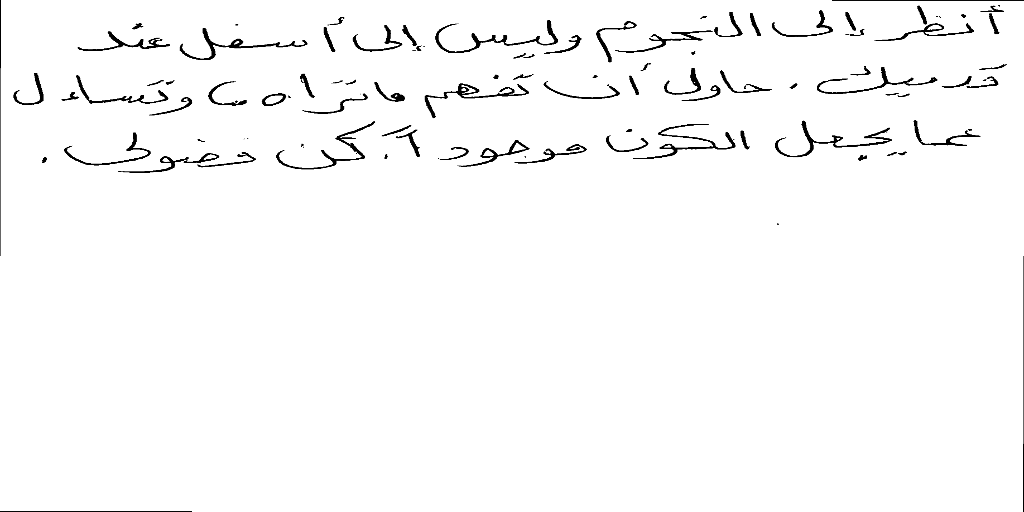 أنظر إلى النجوم وليس إلى أسفل عند
قدميك . حاول أن تفهم ماتراه ، وتساءل
عما يجعل الكون موجود آ. كن فضولى .